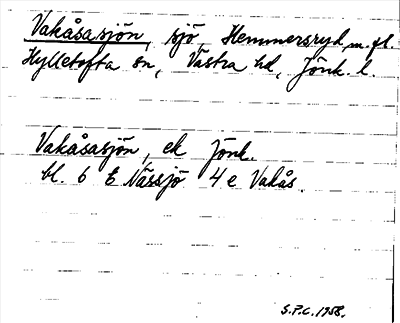 Vakåsasjön, sjö, Hemmersryd m. fl.
Hylletofta sn, Västra hd, Jönk. l.
Vakåsasjön, ek Jönk.
bl. 6 E Nässjö 4 e Vakås.
S.P.C. 1958.